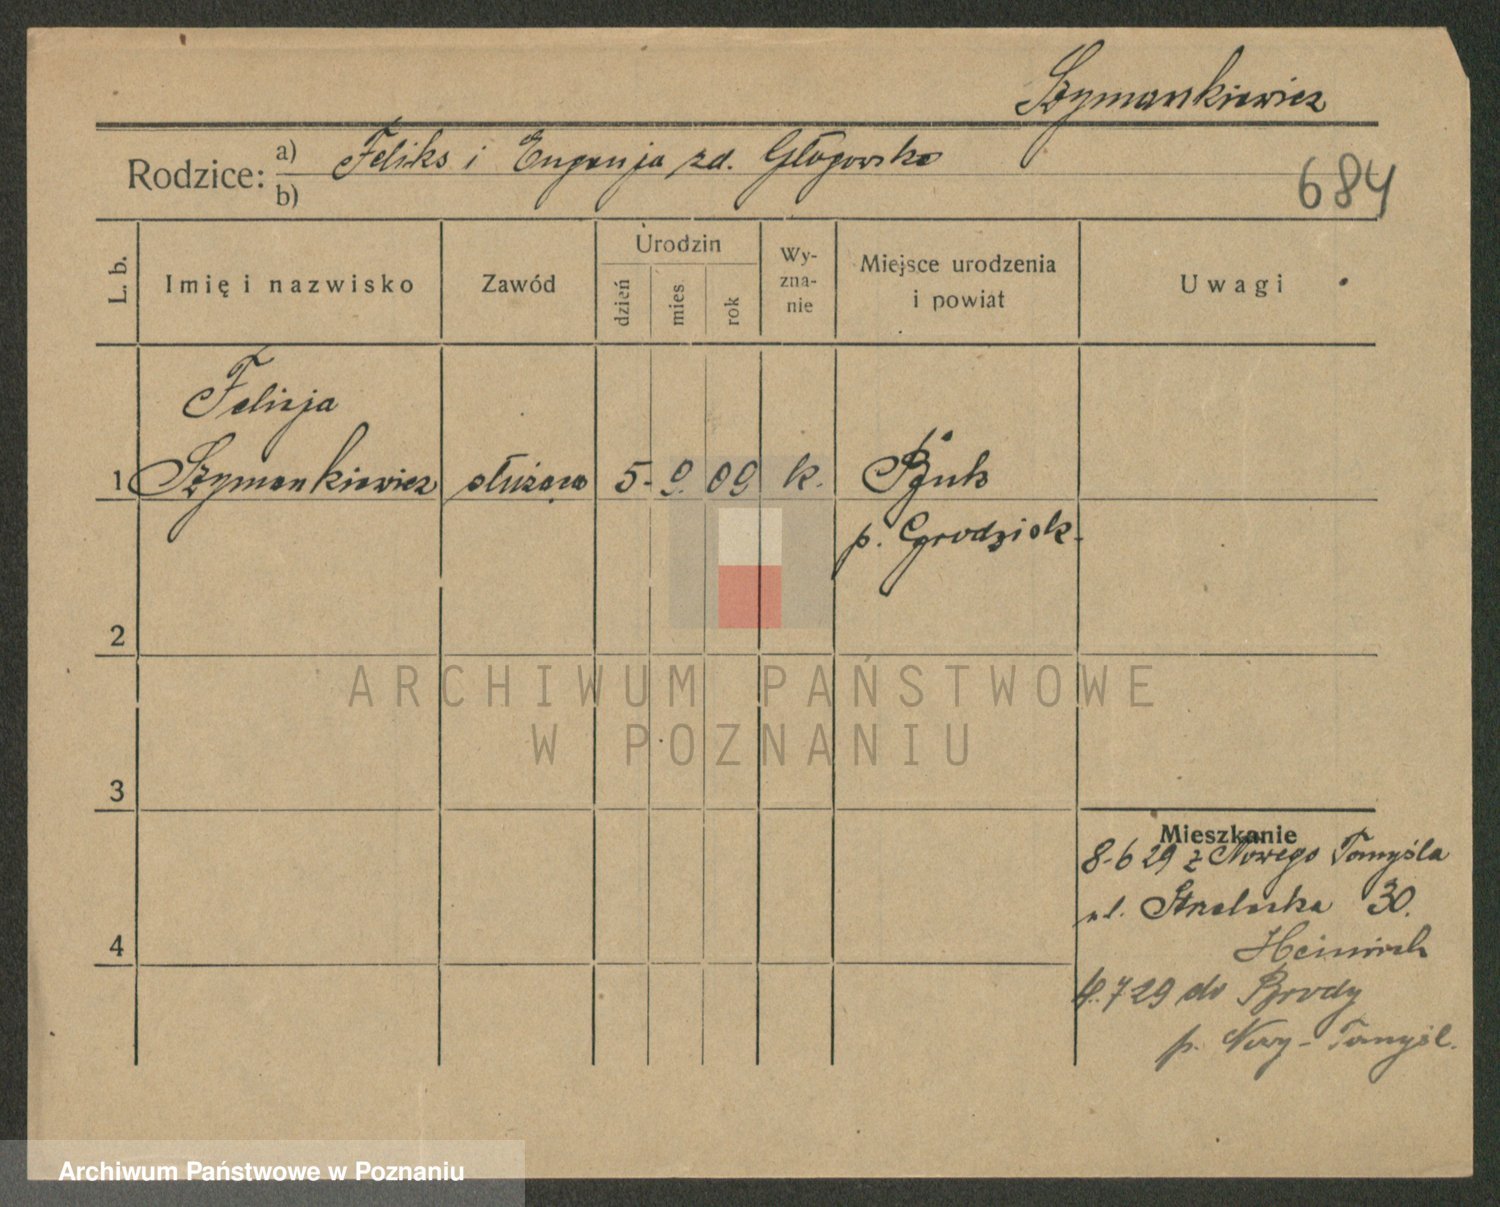 Szymankiewicz
Rodzice: a) Feliks i Eugenja zd. Głogowska
b)
684
L. b.
Imię i nazwisko
Zawód
Urodzin
dzień
mies
rok
Wy-
zna-
nie
Miejsce urodzenia
i powiat
Uwagi
Felicja
1 Szymankiewicz służąca 5. 9. 09 k. Buk
p. Grodzisk.
2
3
4
Mieszkanie
8-6 29 z Nowego Tomyśla
ul. Strzelecka 30.
Heinrich
4. 7 29 do Brody
p. Nowy-Tomyśl.
ARCHIWUM PAŃSTWOWE
W POZNANIU
Archiwum Państwowe w Poznaniu